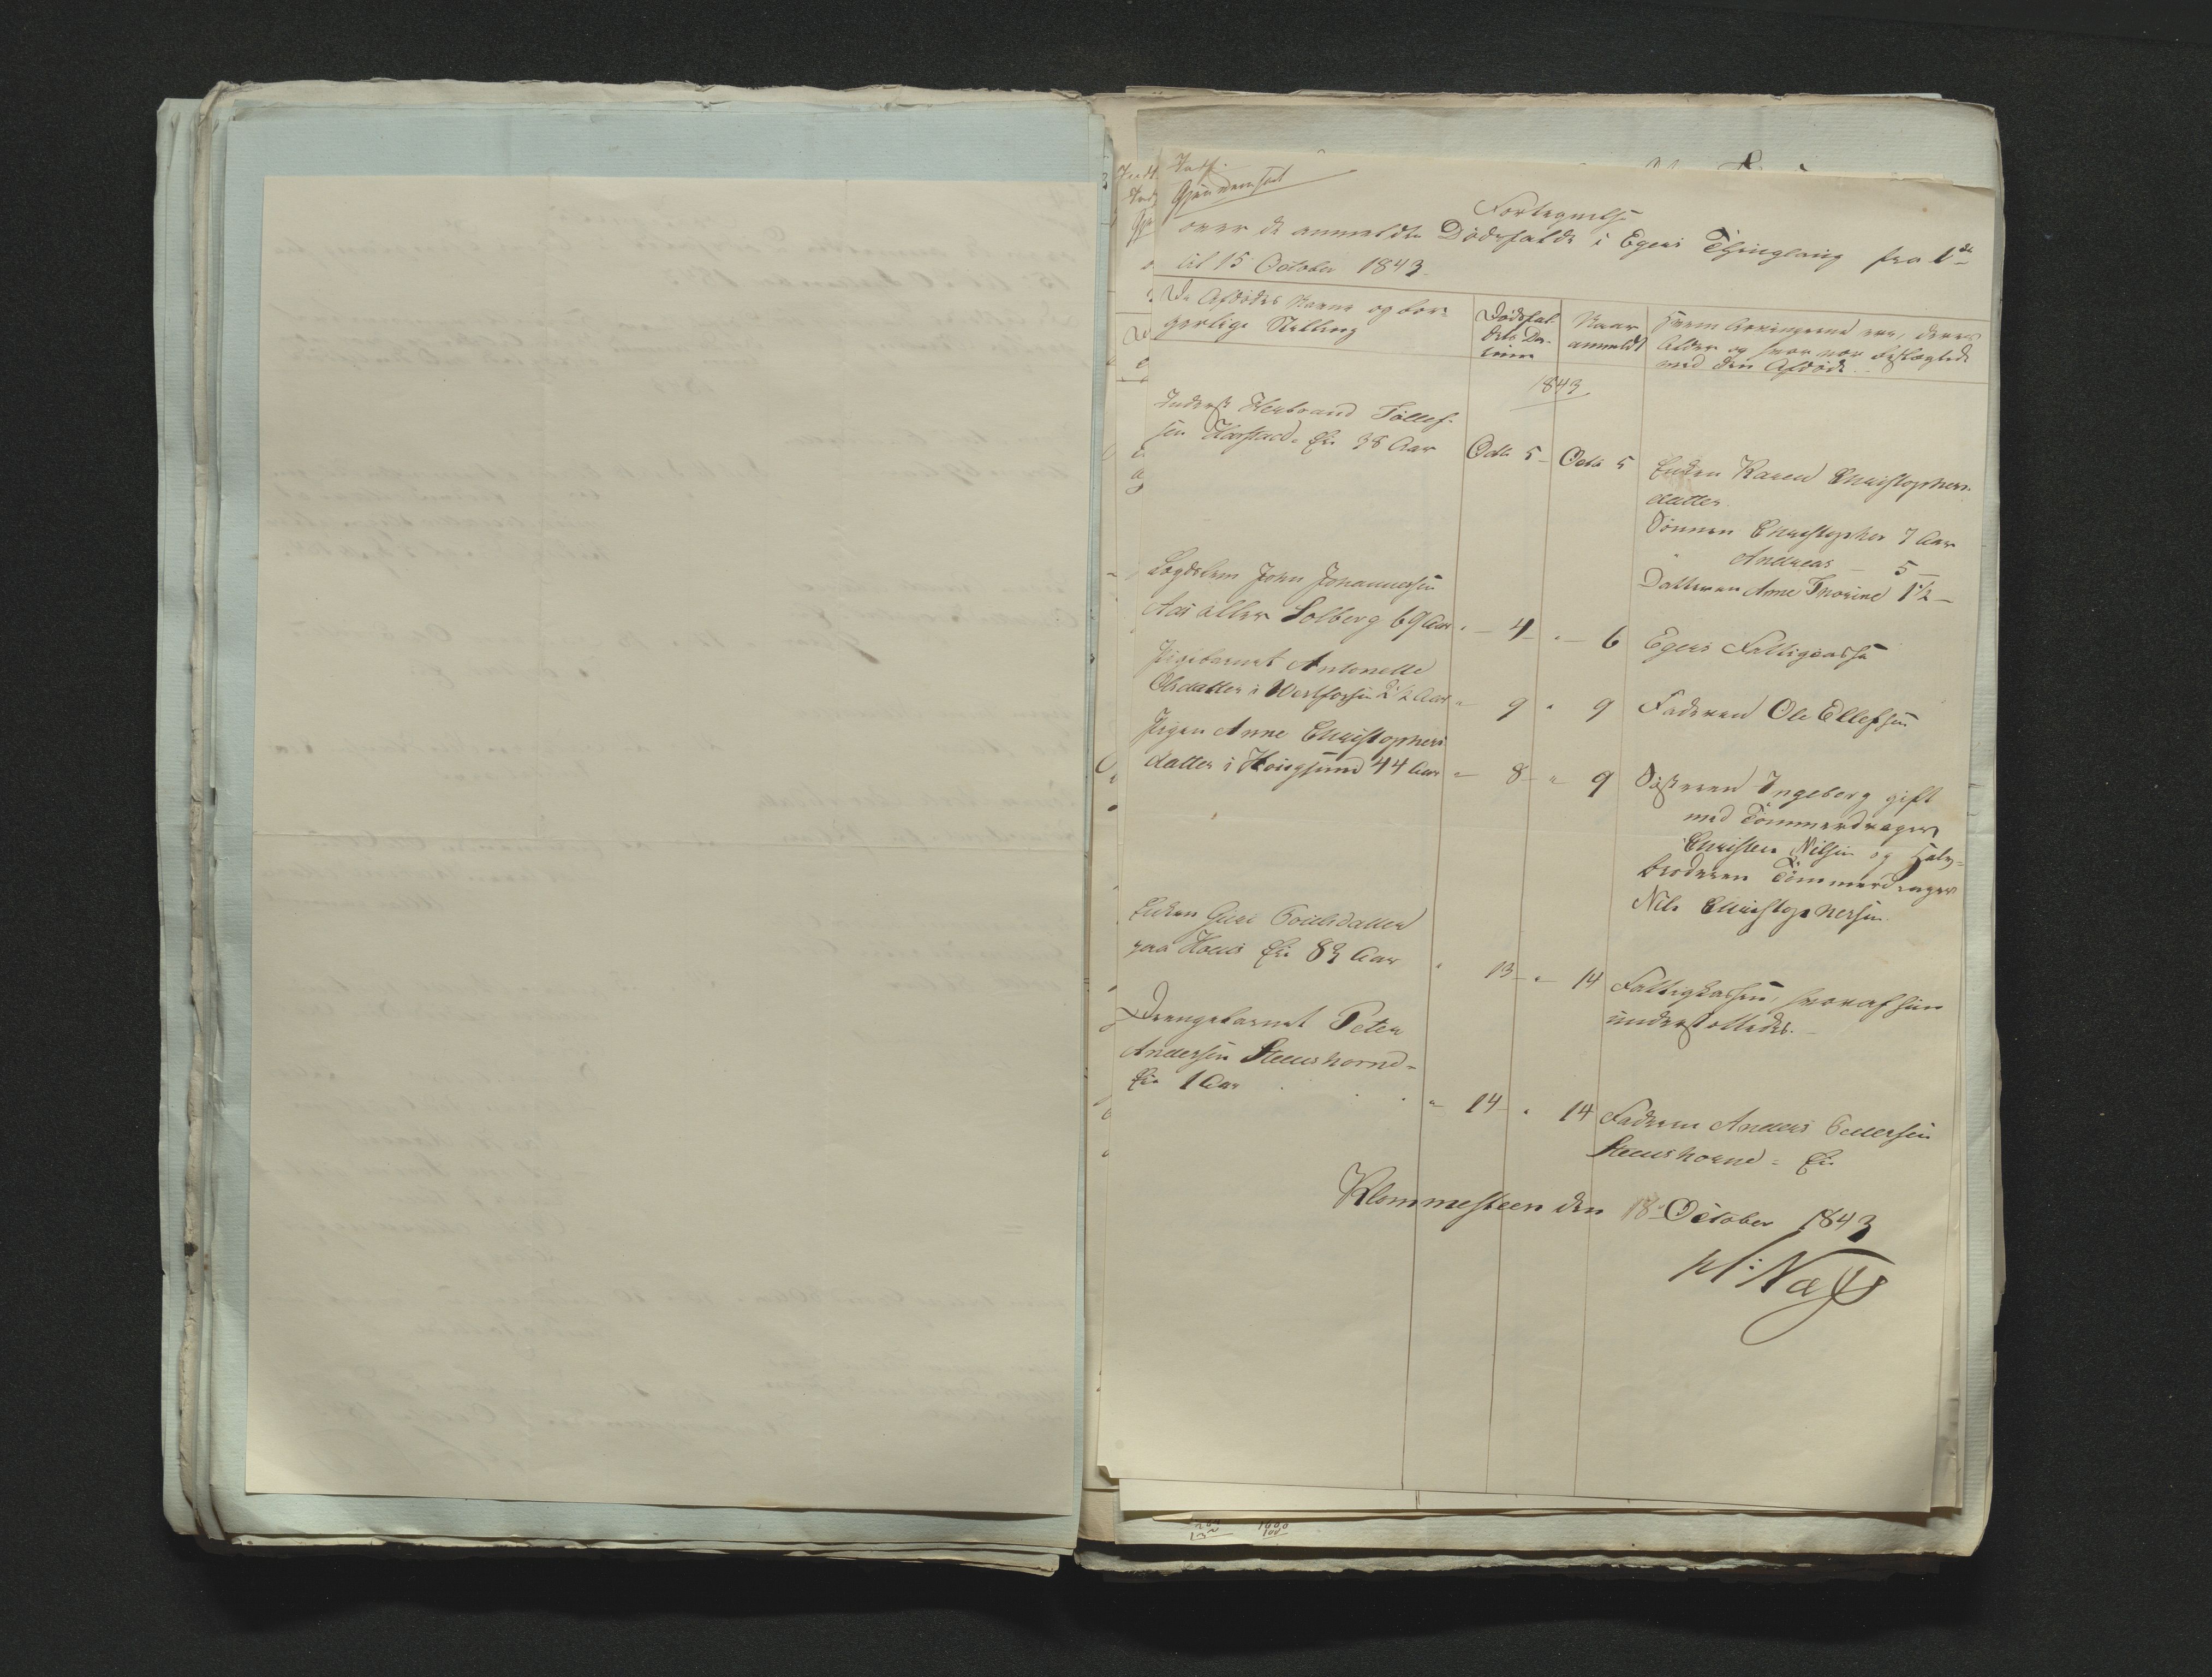 Indf.
Gjennemseet
Fortegnelse
over de anmeldte Dødsfalde i Egers Thinglaug fra 1ste
til 15 October 1843
De Afdødes Navne og bor-
gerlige Stilling
Dødsfal-
dets Da-
tum
Naar
anmeldt
Hvem Arvingerne ere, deres
Alder og hvor nær beslægtede
med den Afdøde.
1843
Inderst Herbrand Tollef-
sen Harstad Ei. 38 Aar
Octb 5 Octb 5
Enken Karen Christophers-
datter
Sønnen Christopher 7 Aar
" Andreas 5 —
Datteren Anne Thorine 1½ —
Lægdslem John Johannesen
Aas eller Solberg 69 Aar " 4 " 6 Egers Fattigcasse
Pigebarnet Antonette
Olsdatter i Vestfossen 2½ Aar " 9 " 9 Faderen Ole Ellefsen
Pigen Anne Christophers-
datter i Hougsund 44 Aar " 8 " 9 Søsteren Ingeborg gift
med Tømmerdrager
Christen Nilsen og Halv-
broderen Tømmerdrager
Nils Christophersen
Enken Guri Poulsdatter
paa Houg Ei. 83 Aar " 13 " 14 Fattigkassen, hvoraf hun
understøttedes.
Drengebarnet Peter
Andersen Steenshorne-
Ei. 1 Aar " 14 " 14 Faderen Anders Pedersen
Steenshorne-Ei.
Klommesteen den 18 October 1843